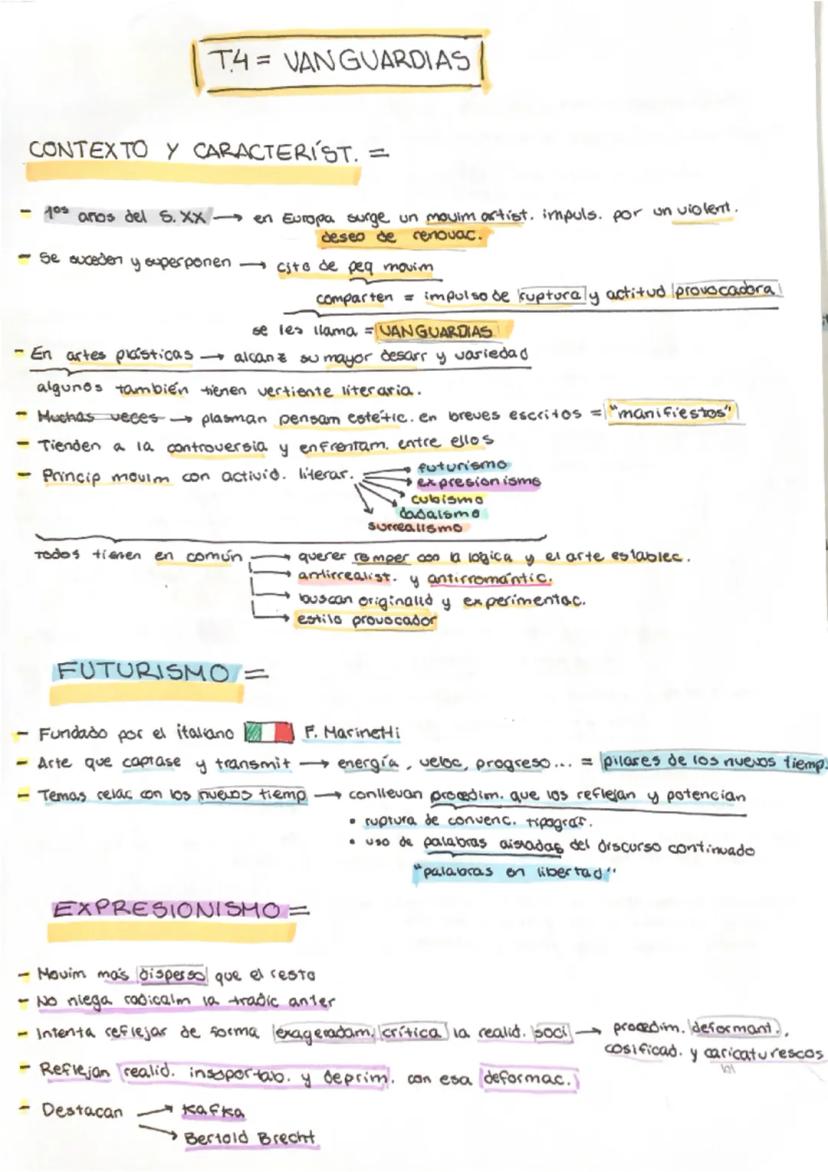 T.4 = VANGUARDIAS
CONTEXTO Y CARACTERÍST. =
- 1os años del S. XX → en Europa surge un movim artist. impuls. por un violent.
deseo de renovac.
- Se suceden y superponen → cjto de peq movim
comparten = impulso de ruptura y actitud provocadora
se les llama = VANGUARDIAS
- En artes plásticas → alcanz su mayor desarr y variedad
algunos también tienen vertiente literaria.
- Muchas veces → plasman pensam estétic. en breves escritos = "manifiestos"
- Tienden a la controversia y enfrentam. entre ellos
- Princip movim con activid. literar. → futurismo
→ expresionismo
→ cubismo
→ dadaísmo
→ surrealismo
Todos tienen en común → querer romper con la lógica y el arte establec.
→ antirrealist. y antirromántic.
→ buscan originalid y experimentac.
→ estilo provocador
FUTURISMO =
- Fundado por el italiano F. Marinetti
- Arte que captase y transmit → energía, veloc, progreso... = pilares de los nuevos tiemp.
- Temas relac con los nuevos tiemp → conllevan procedim. que los reflejan y potencian
• ruptura de convenc. tipográf.
• uso de palabras aisladas del discurso continuado
"palabras en libertad"
EXPRESIONISMO =
- Movim más disperso que el resto
- No niega radicalm la tradic anter
- Intenta reflejar de forma exageradam. crítica la realid. soci → procedim. deformant.,
cosificad. y caricaturescos
- Reflejan realid. insoportab. y deprim. con esa deformac.
- Destacan → Kafka
→ Bertold Brecht